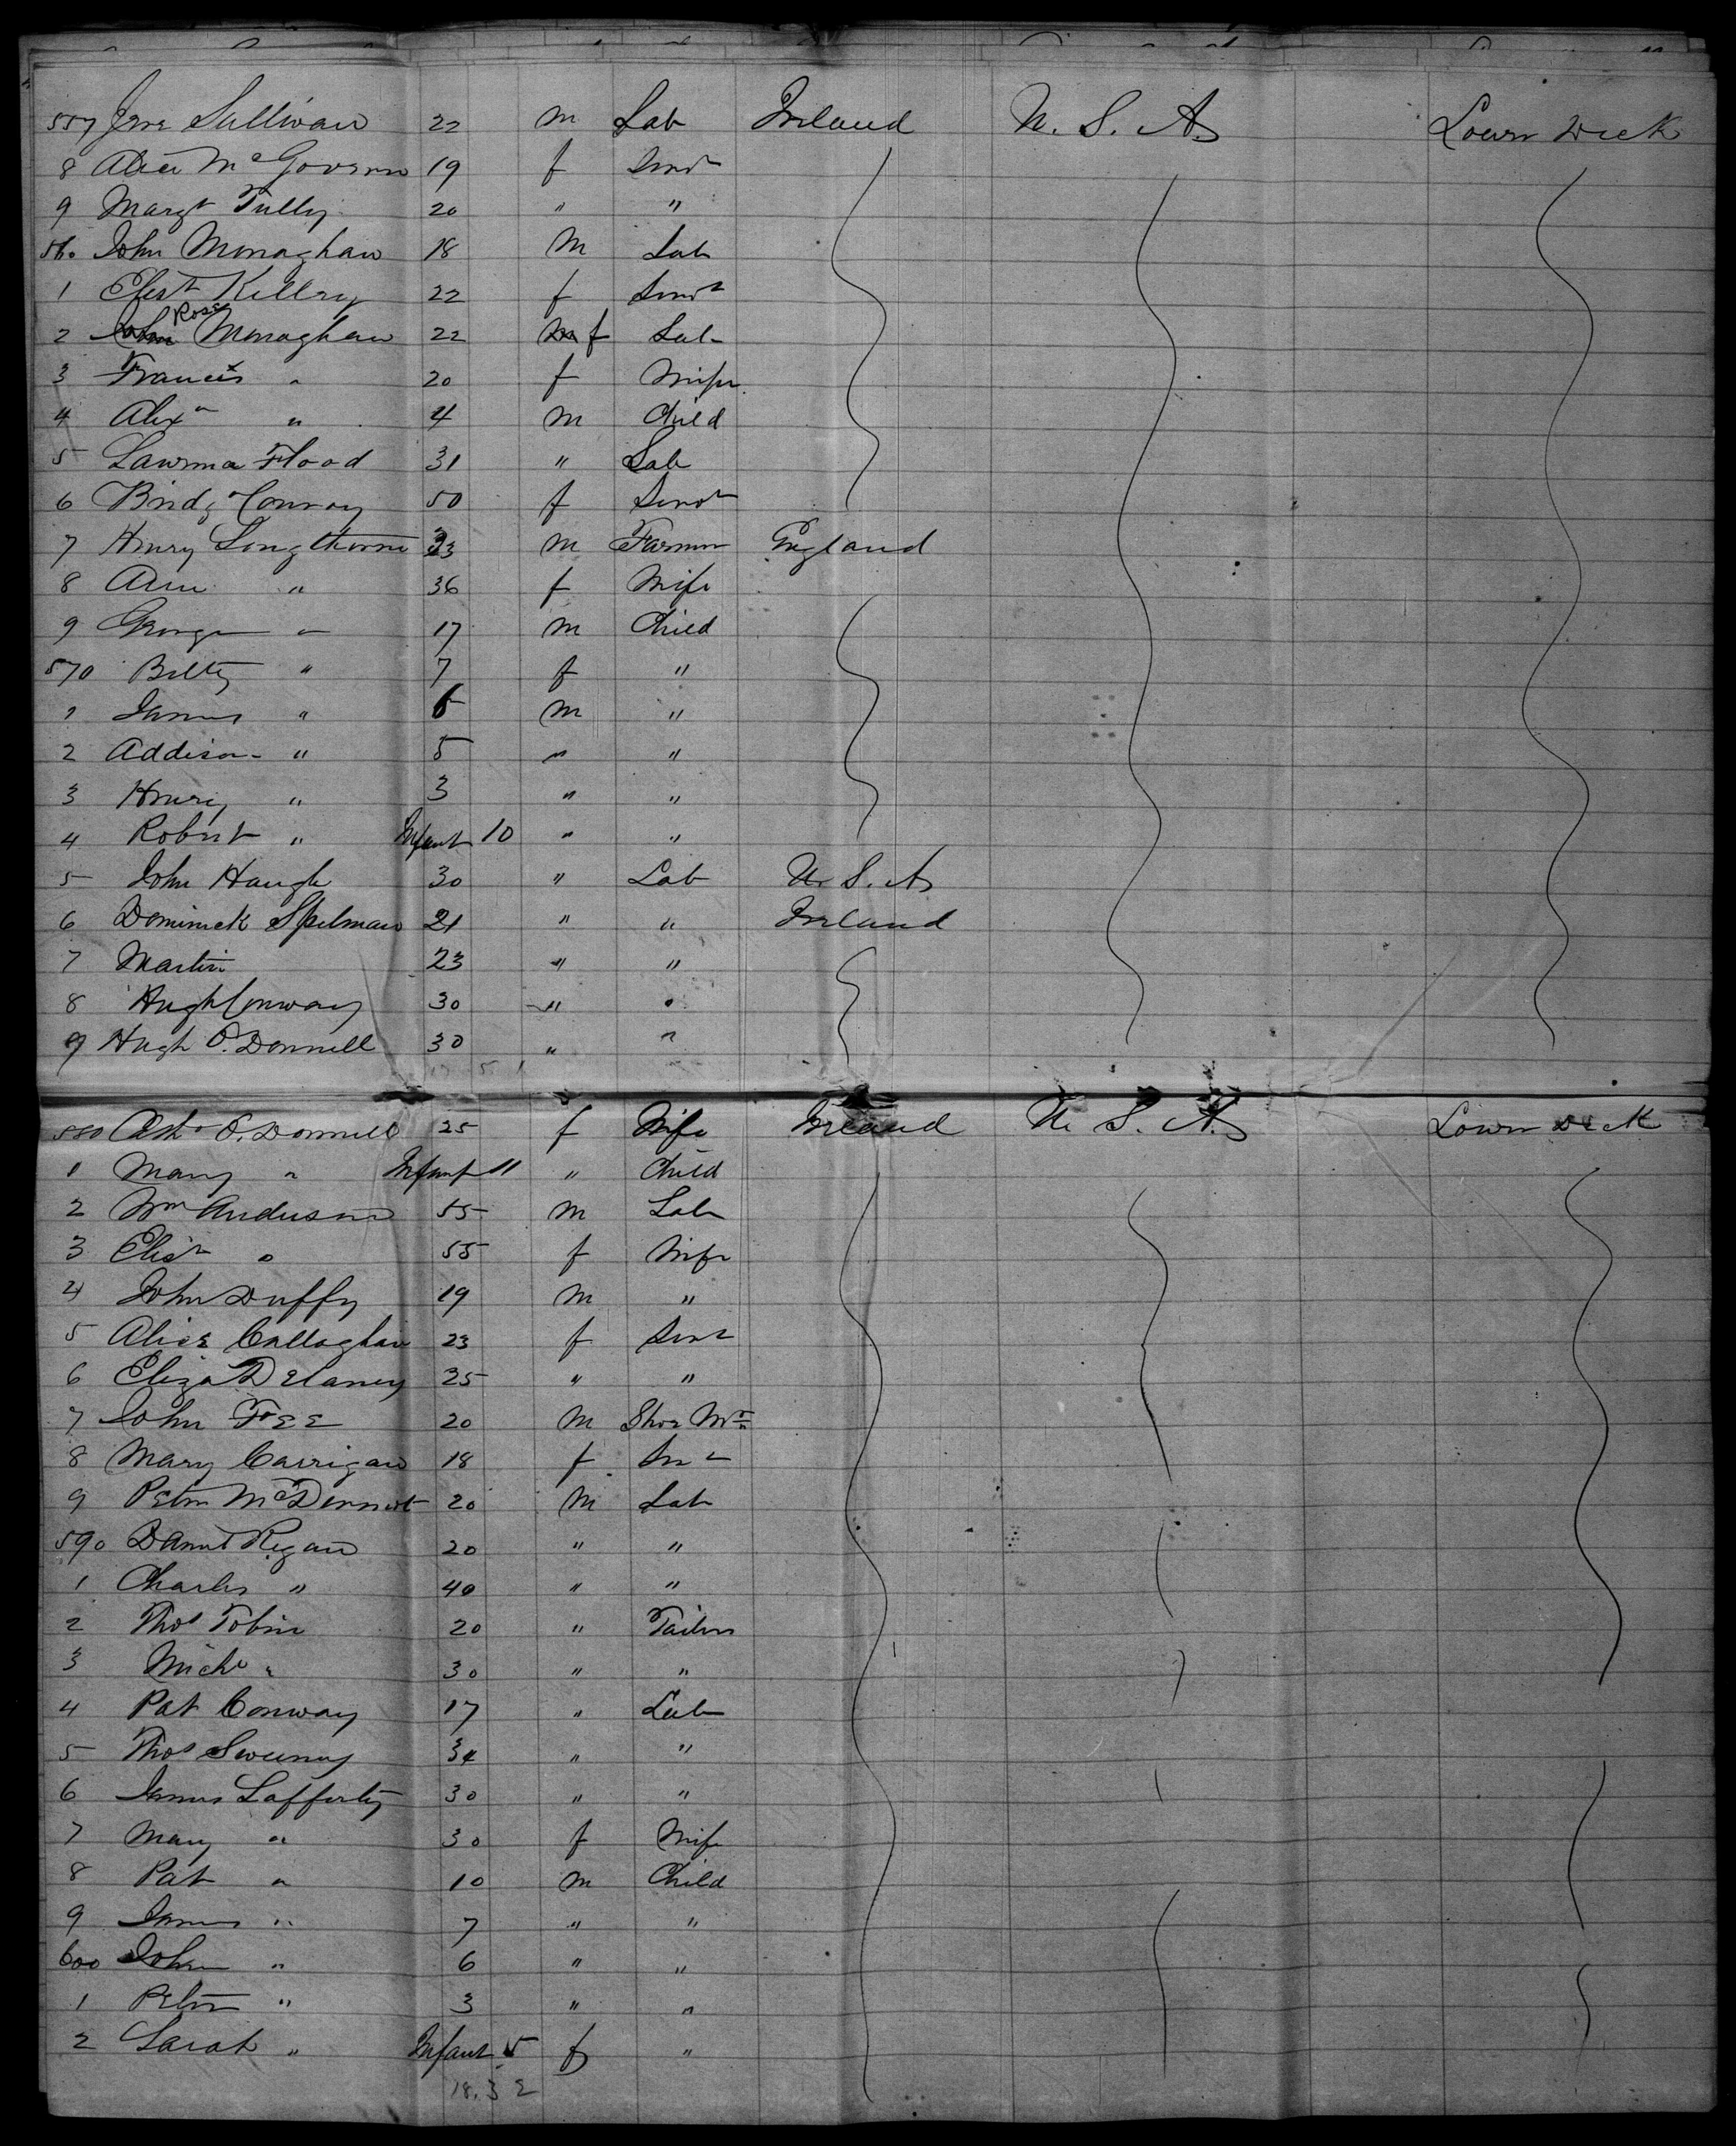 557 Jere Sullivan 22 m Lab Ireland U. S. A. Lower Deck
8 Alice McGovern 19 f Servt
9 Margt Tully 20 " "
560 John Monaghan 18 m Lab
1 Elist Kellry 22 f Servt
2 John Rose Monaghan 22 m f Lab
3 Francis " 20 f Wife
4 Alexr " 4 m Child
5 Lawrence Flood 31 " Lab
6 Bridg Conroy 50 f Servt
7 Henry Longthorne 33 m Farmer England
8 Ann " 36 f Wife
9 George " 17 m Child
570 Betty " 7 f "
1 James " 6 m "
2 Addison " 5 " "
3 Henry " 3 " "
4 Robert " Infant 10 " "
5 John Haugh 30 " Lab U. S. A.
6 Dominick Spelman 21 " " Ireland
7 Martin 23 " "
8 Hugh Conway 30 " "
9 Hugh O.Donnell 30 " "
580 O.Donnell 25 f Wife Ireland U. S. A. Lower Deck
1 Mary " Infant 11 " Child
2 Wm Anderson 55 m Lab
3 Elisth " 55 f Wife
4 John Duffy 19 m "
5 Alice Callaghan 23 f Servt
6 Eliza Delaney 25 " "
7 John Fee 20 m Shoe Mr
8 Mary Carrigan 18 f Srvt
9 Peter McDermot 20 m Lab
590 Danl Regan 20 " "
1 Charles " 40 " "
2 Thos Tobin 20 " Tailor
3 Michl " 30 " "
4 Pat Conway 17 " Lab
5 Thos Sweeney 34 " "
6 James Lafferty 30 " "
7 Mary " 30 f Wife
8 Pat " 10 m Child
9 James " 7 " "
600 John " 6 " "
1 Peter " 3 " "
2 Sarah " Infant 5 f "
18. 3 2